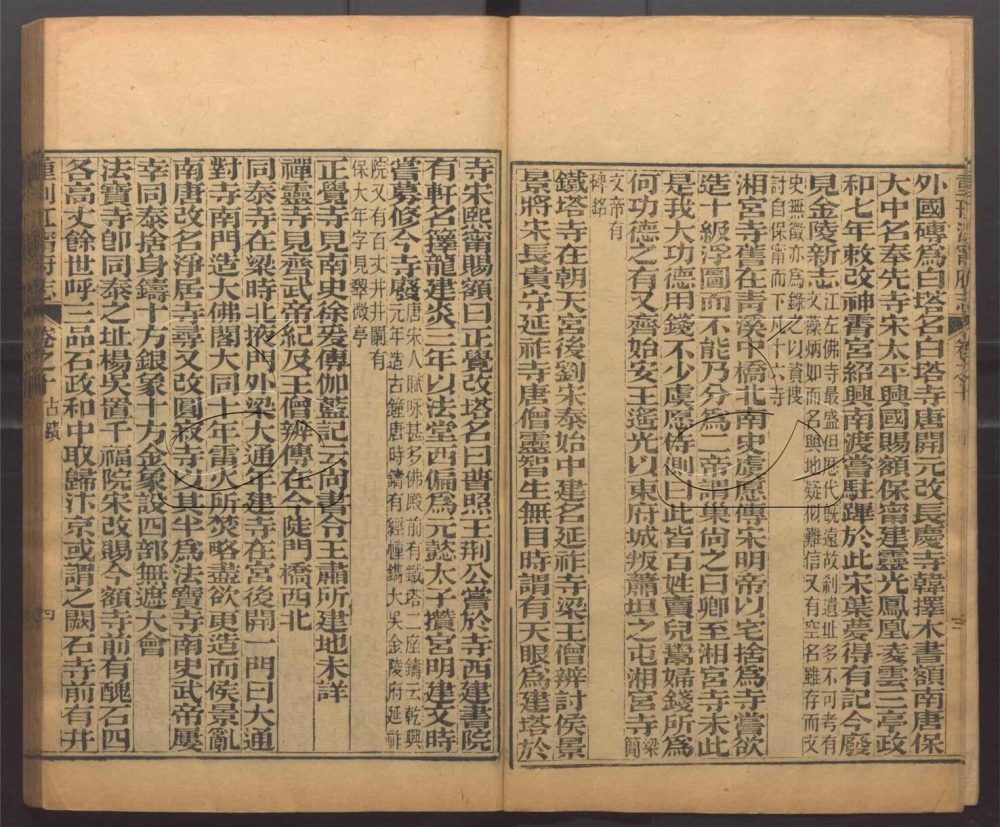 外國磚爲白塔名白塔寺唐開元改長慶寺韓擇木書額南唐保
大中名奉先寺宋太平興國賜額保甯建靈光鳳凰凌雲三亭政
和七年敕改神霄宮紹興南渡嘗駐蹕於此宋葉夢得有記今廢
見金陵新志江左佛寺最盛但時代旣遠故刹遺址多不可考有
文藻炳如而名與地疑似難信又有空名雖存而文
史無徵亦爲錄之以資搜
討自保甯而下凡十六寺
湘宮寺舊在靑溪中橋北南史虞愿傳宋明帝以宅捨爲寺嘗欲
造十級浮圖而不能乃分爲二帝謂巢尚之曰卿至湘宮寺未此
是我大功德用錢不少虞愿侍側曰此皆百姓賣兒鬻婦錢所爲
何功德之有又齊始安王遙光以東府城叛蕭坦之屯湘宮寺梁
簡
文帝有
碑銘
鐵塔寺在朝天宮後劉宋泰始中建名延祚寺梁王僧辨討侯景
景將宋長貴守延祚寺唐僧靈智生無目時謂有天眼爲建塔於
寺宋熙甯賜額曰正覺改塔名曰普照王荆公嘗於寺西建書院
有軒名擇龍建炎三年以法堂西偏爲元懿太子攢宮明建文時
嘗募修今寺廢唐宋人賦咏甚多佛殿前有鐵塔二座鑄云乾興
元年造古鐘唐時鑄有經幢鐫大吳金陵府延祚
院又有百丈井井闌有
保大年字見翠微亭
正覺寺見南史徐爰傳伽藍記云尚書令王肅所建地未詳
禪靈寺見齊武帝紀及王僧辨傳在今陡門橋西北
同泰寺在梁時北掖門外梁大通年建寺在宮後開一門曰大通
對寺南門造大佛閣大同十年雷火所焚略盡欲更造而侯景亂
南唐改名淨居寺尋又改圓寂寺以其半爲法寶寺南史武帝屢
幸同泰捨身鑄十方銀象十方金象設四部無遮大會
法寶寺卽同泰之址楊吳置千福院宋改賜今額寺前有醜石四
各高丈餘世呼三品石政和中取歸汴京或謂之闕石寺前有井
重刊江甯府志 卷之十 古蹟 四